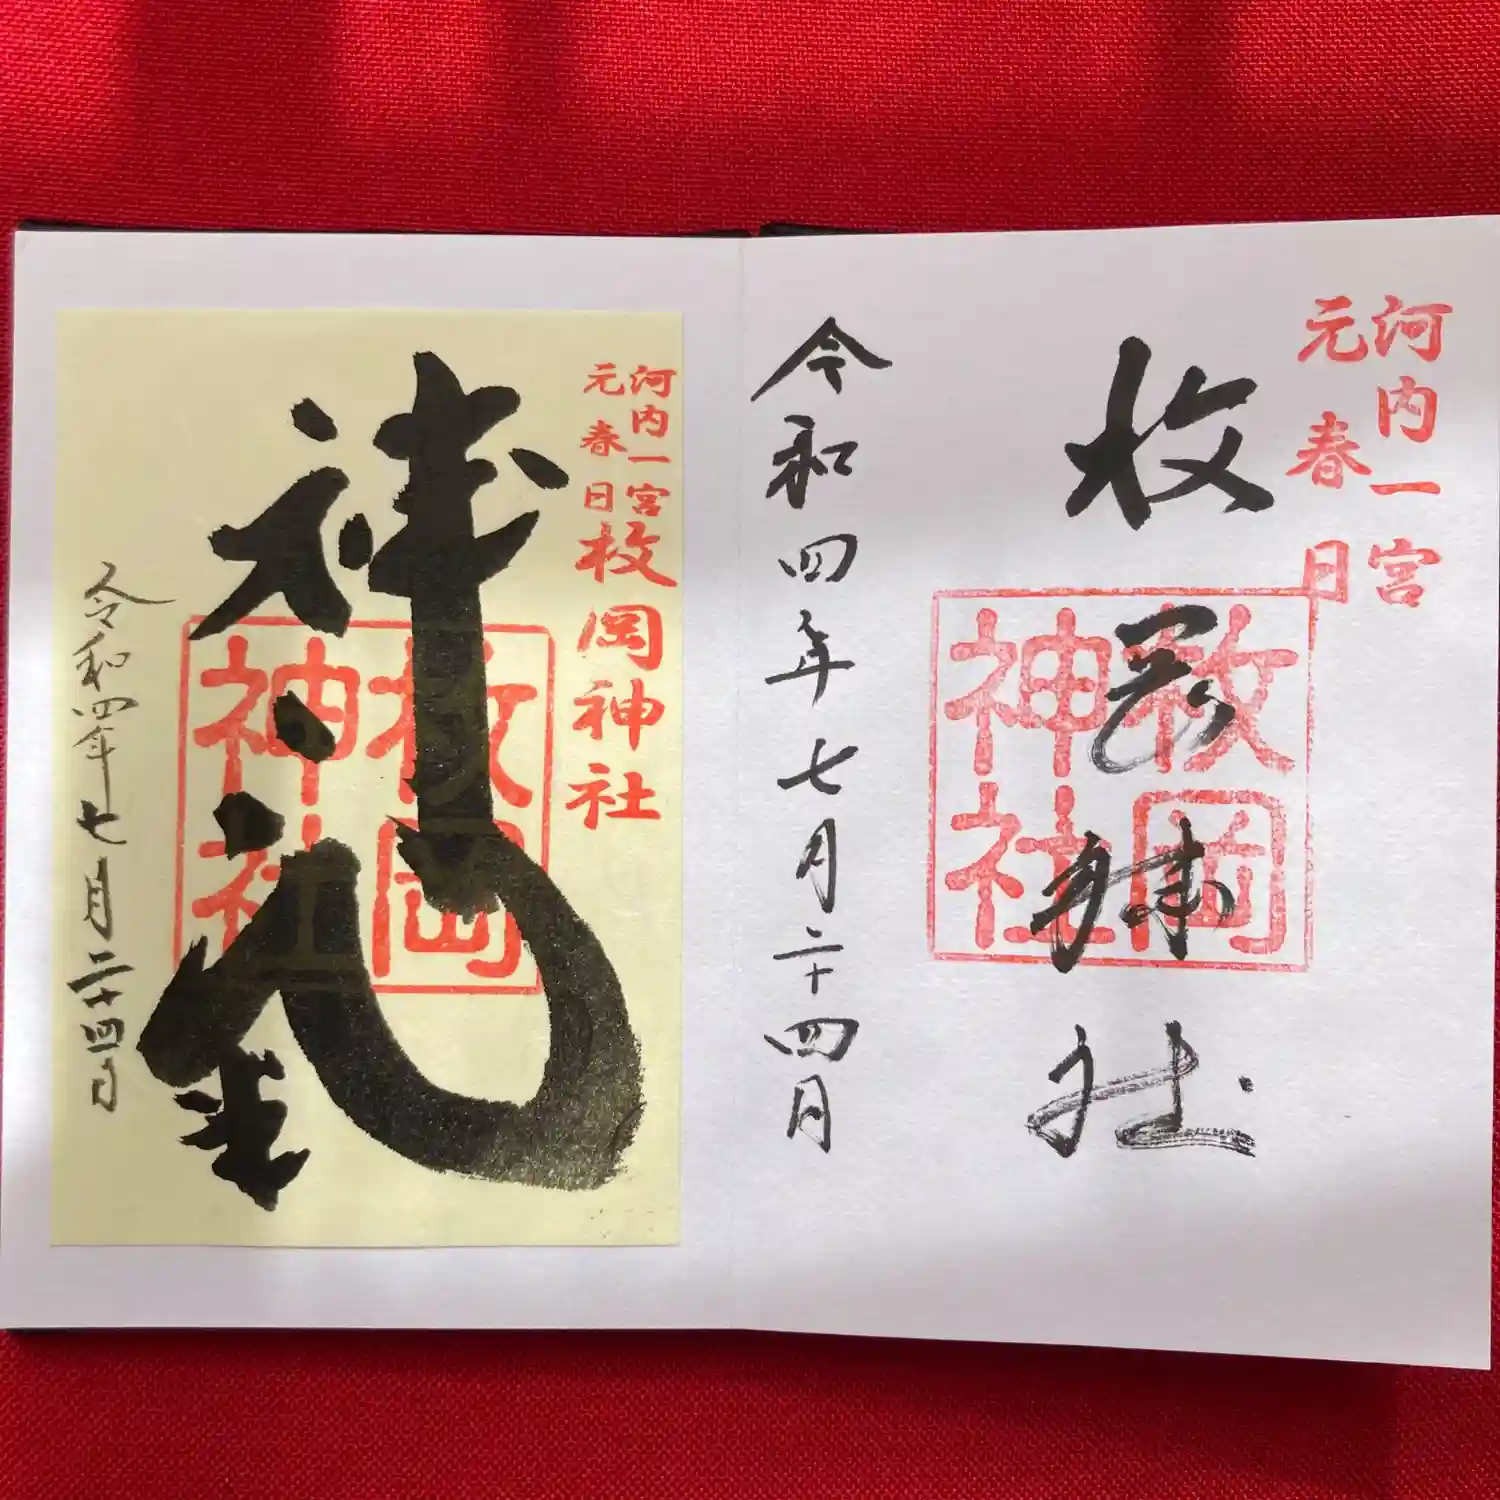 河内一宮
元春日
枚岡神社
枚岡神社
令和四年七月二十四日
河内一宮
元春日
枚岡神社
神氣
枚岡神社
令和四年七月二十四日